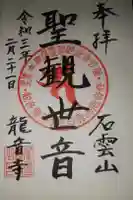 奉拝
石雲山
聖観世音
龍音寺
令和三年
二月二十一日